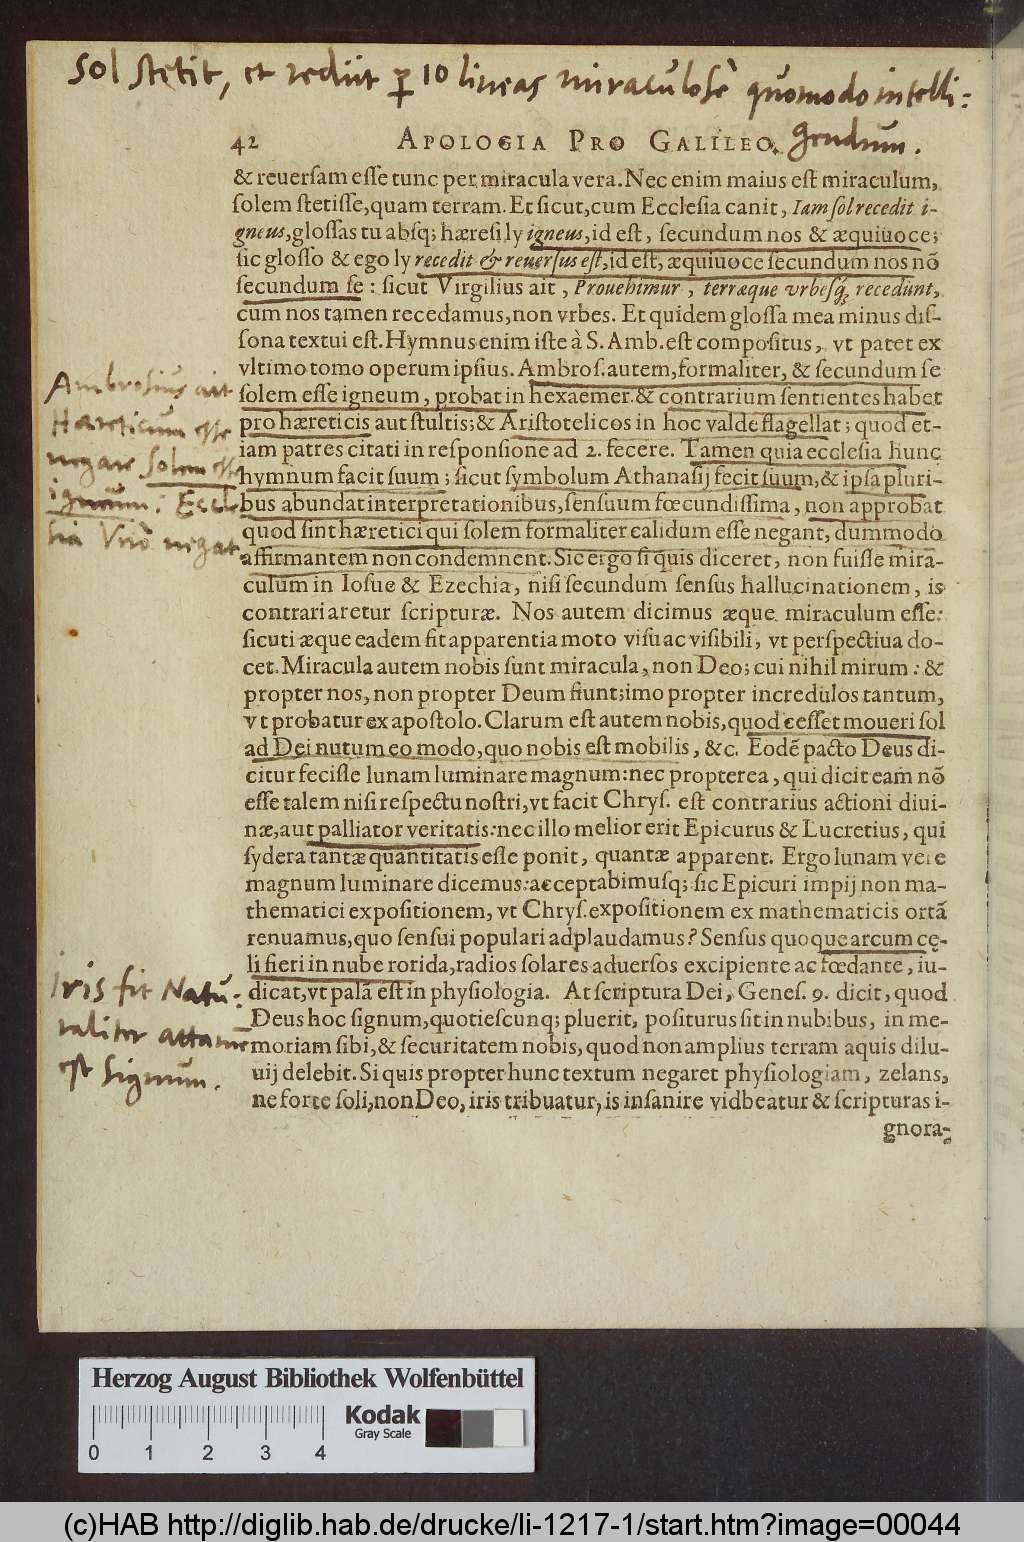 Sol stetit, et rediit ꝑ 10 lineas miraculosè quomodo intelli:
gendum.
42 APOLOGIA PRO GALILEO.
& reuersam esse tunc per miracula vera. Nec enim maius est miraculum,
solem stetisse, quam terram. Et sicut, cum Ecclesia canit, Iam sol recedit i-
gneus, glossas tu absq; hæresi ly igneus, id est, secundum nos & æquiuoce;
sic glosso & ego ly recedit & reuersus est, id est, æquiuoce secundum nos nõ
secundum se: sicut Virgilius ait, Prouehimur, terræque vrbesq́; recedunt,
cum nos tamen recedamus, non vrbes. Et quidem glossa mea minus dis-
sona textui est. Hymnus enim iste à S. Amb. est compositus, vt patet ex
vltimo tomo operum ipsius. Ambros. autem, formaliter, & secundum se
solem esse igneum, probat in hexaemer. & contrarium sentientes habet
pro hæreticis aut stultis; & Aristotelicos in hoc valde flagellat; quod et-
iam patres citati in responsione ad 2. fecere. Tamen quia ecclesia hunc
hymnum facit suum; sicut symbolum Athanasij fecit suum, & ipsa pluri-
bus abundat interpretationibus, sensuum fœcundissima, non approbat
quod sint hæretici qui solem formaliter calidum esse negant, dummodo
affirmantem non condemnent. Sic ergo si quis diceret, non fuisse mirã-
culum in Iosue & Ezechia, nisi secundum sensus hallucinationem, is
contrariaretur scripturæ. Nos autem dicimus æque miraculum esse:
sicuti æque eadem fit apparentia moto visu ac visibili, vt perspectiua do-
cet. Miracula autem nobis sunt miracula, non Deo; cui nihil mirum: &
propter nos, non propter Deum fiunt; imo propter incredulos tantum,
vt probatur ex apostolo. Clarum est autem nobis, quod cesset moueri sol
ad Dei nutum eo modo, quo nobis est mobilis, &c. Eodẽ pacto Deus di-
citur fecisse lunam luminare magnum: nec propterea, qui dicit eam nõ
esse talem nisi respectu nostri, vt facit Chrys. est contrarius actioni diui-
næ, aut palliator veritatis: nec illo melior erit Epicurus & Lucretius, qui
sydera tantæ quantitatis esse ponit, quantæ apparent. Ergo lunam vere
magnum luminare dicemus: acceptabimusq; sic Epicuri impij non ma-
thematici expositionem, vt Chrys. expositionem ex mathematicis ortã
renuamus, quo sensui populari adplaudamus? Sensus quoque arcum cę-
li fieri in nube rorida, radios solares aduersos excipiente ac fœdante, iu-
dicat, vt palã est in physiologia. At scriptura Dei, Genes. 9. dicit, quod
Deus hoc signum, quotiescunq; pluerit, positurus sit in nubibus, in me-
moriam sibi, & securitatem nobis, quod non amplius terram aquis dilu-
uij delebit. Si quis propter hunc textum negaret physiologiam, zelans,
ne forte soli, non Deo, iris tribuatur, is insanire vidbeatur & scripturas i-
gnora-
Ambrosius ait
Hæreticum esse
negare Solem esse
igneum: Eccle
sia Vrõ negat
Iris fit Natu:
raliter attamen
est Signum.
Herzog August Bibliothek Wolfenbüttel
Kodak
Gray Scale
0 1 2 3 4
(c)HAB http://diglib.hab.de/drucke/li-1217-1/start.htm?image=00044